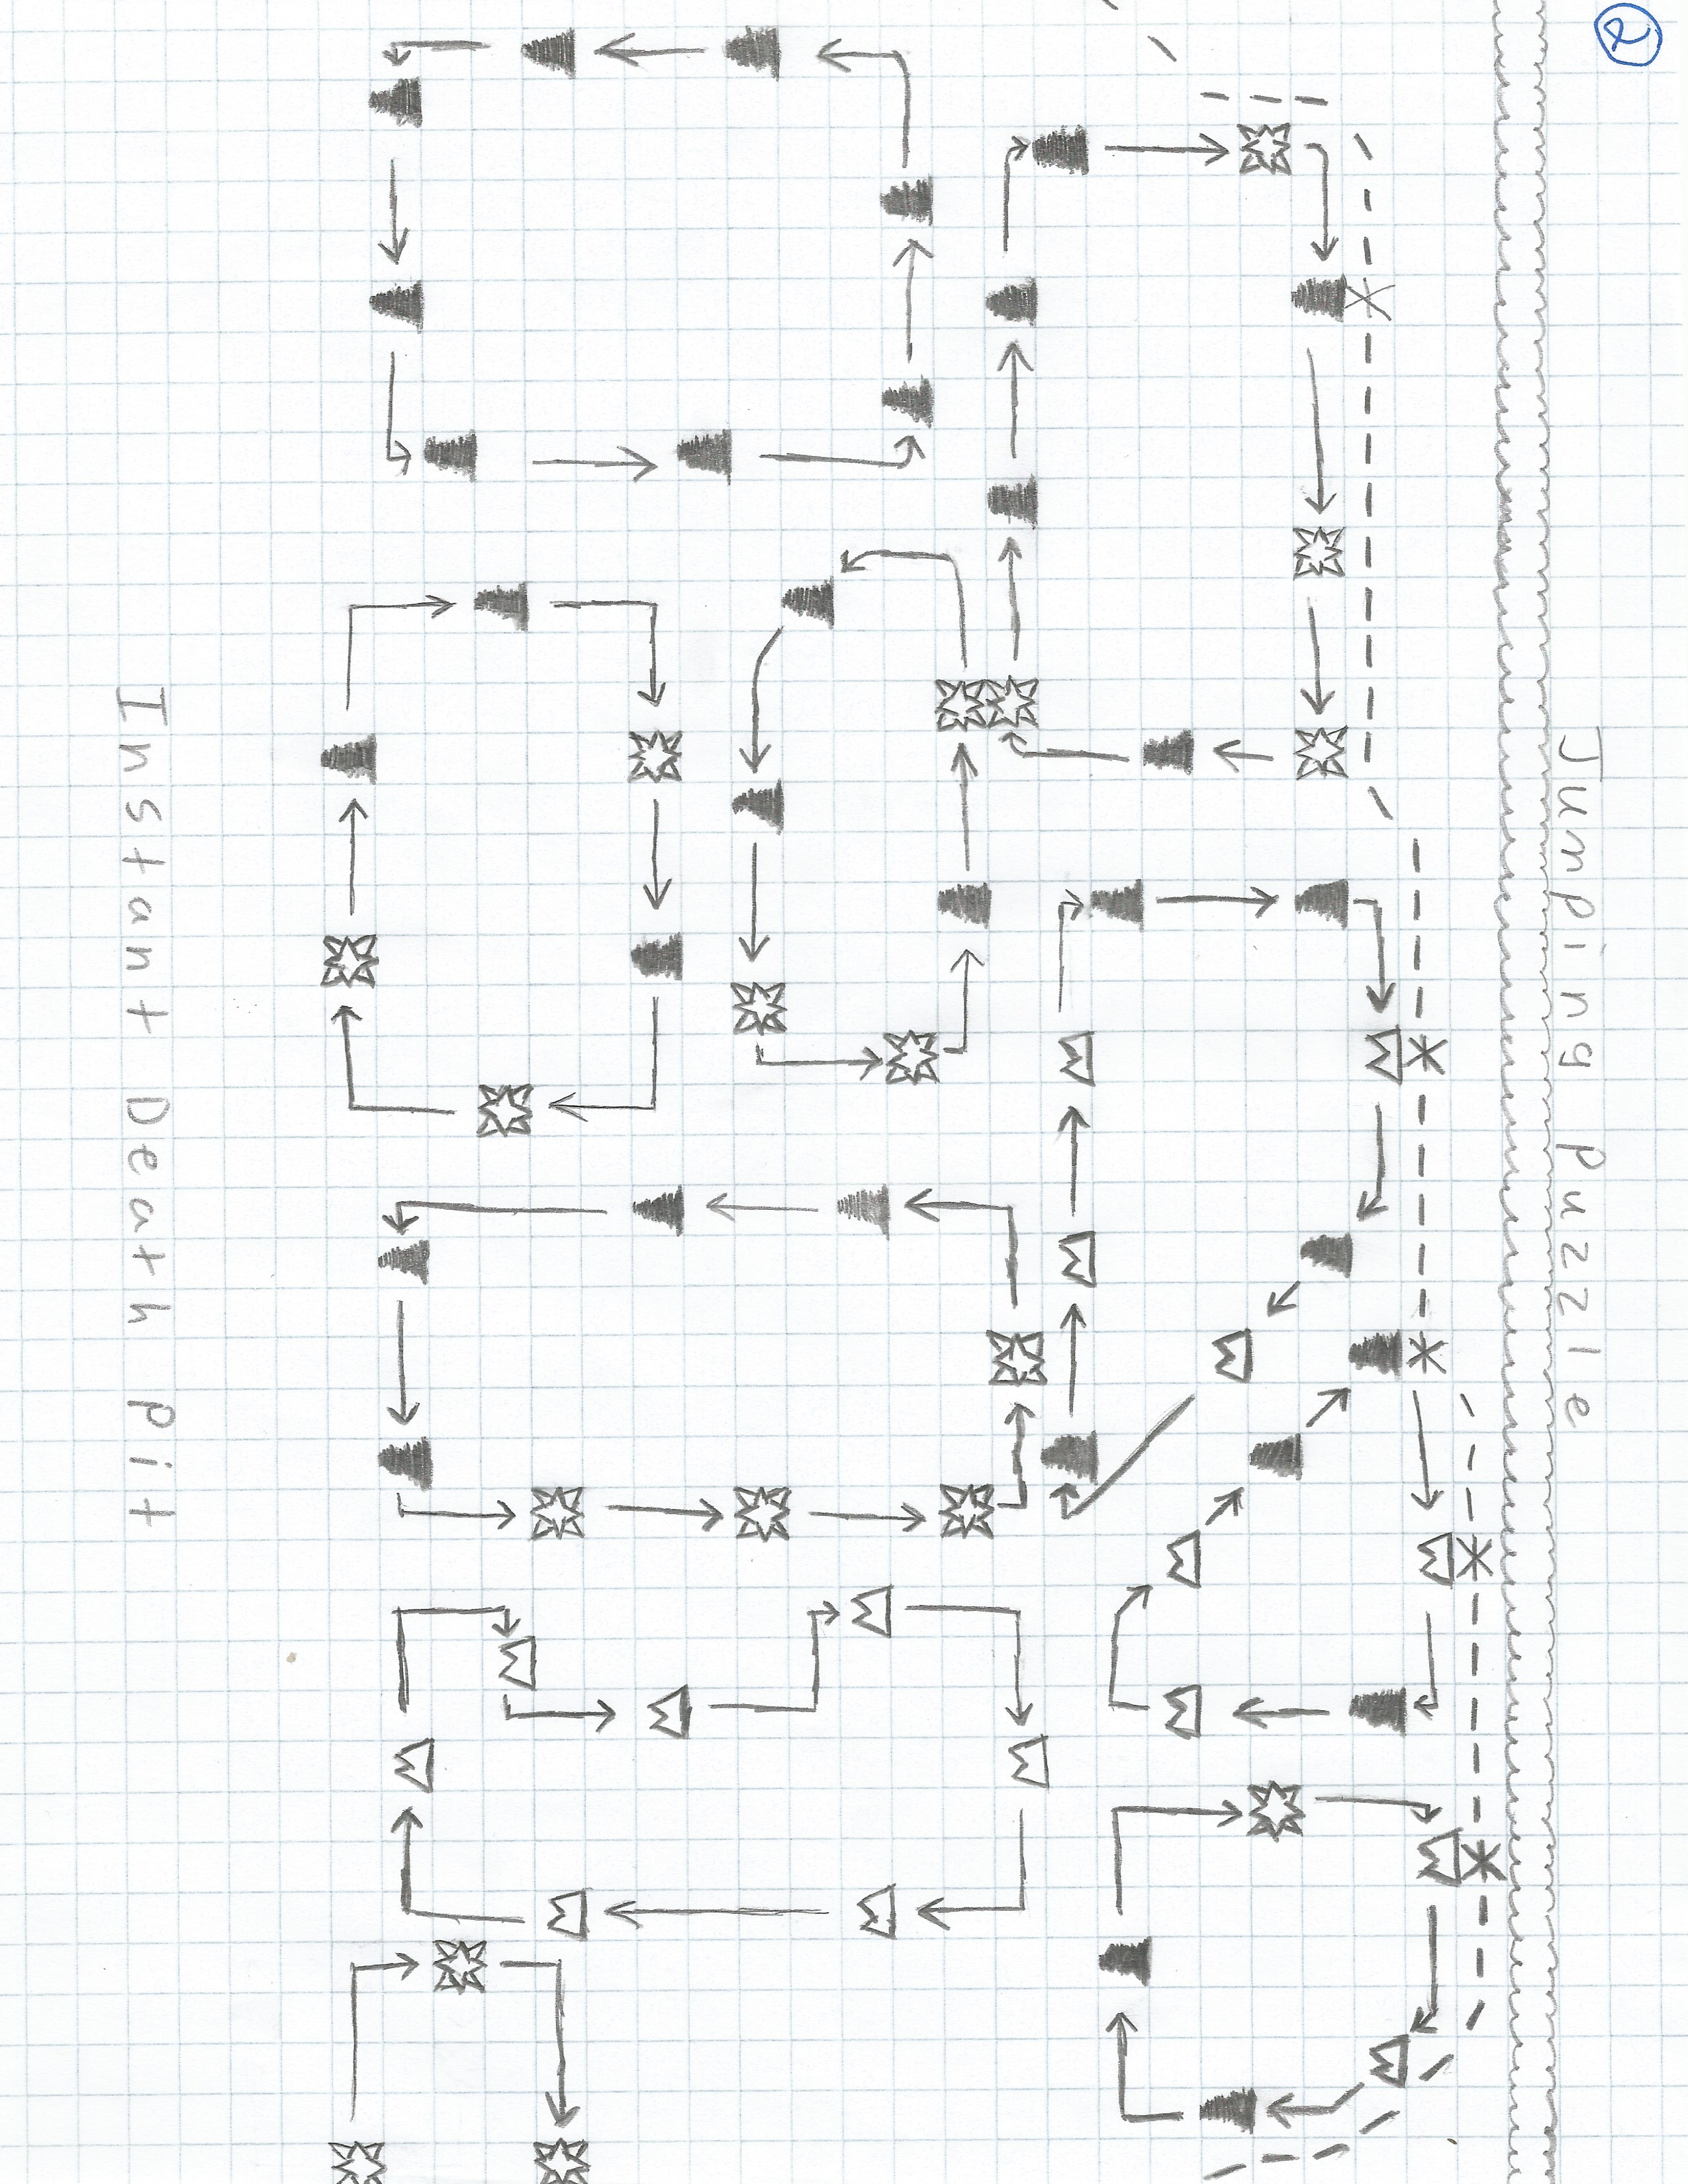 2
Jumping puzzle
Instant Death pit